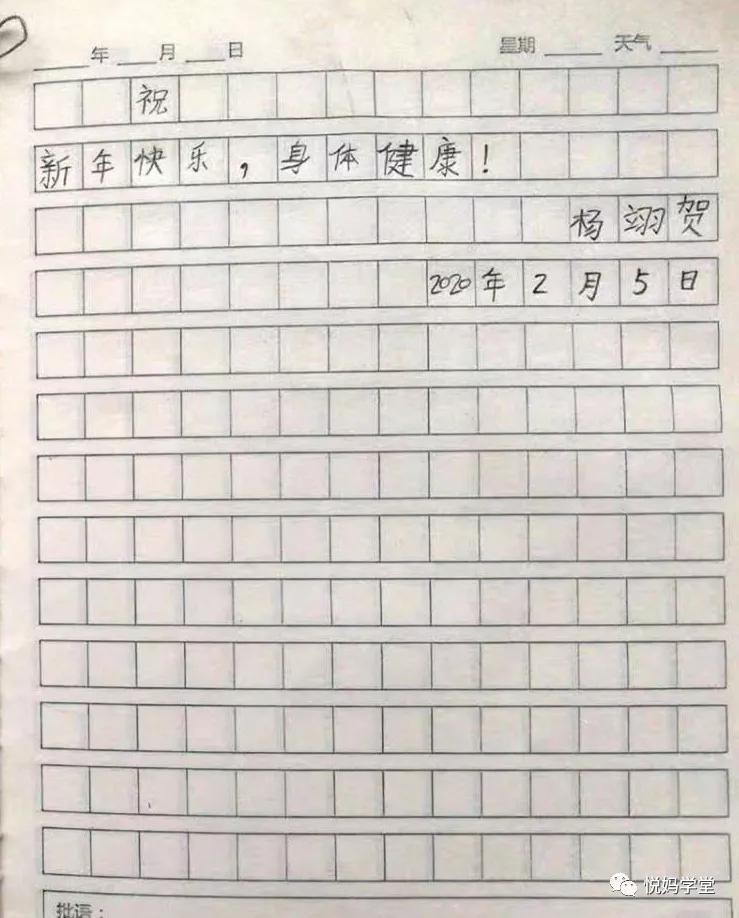 年 月 日 星期 天气
祝
新年快乐,身体健康!
杨翊贺
2020年2月5日
批语:
悦妈学堂